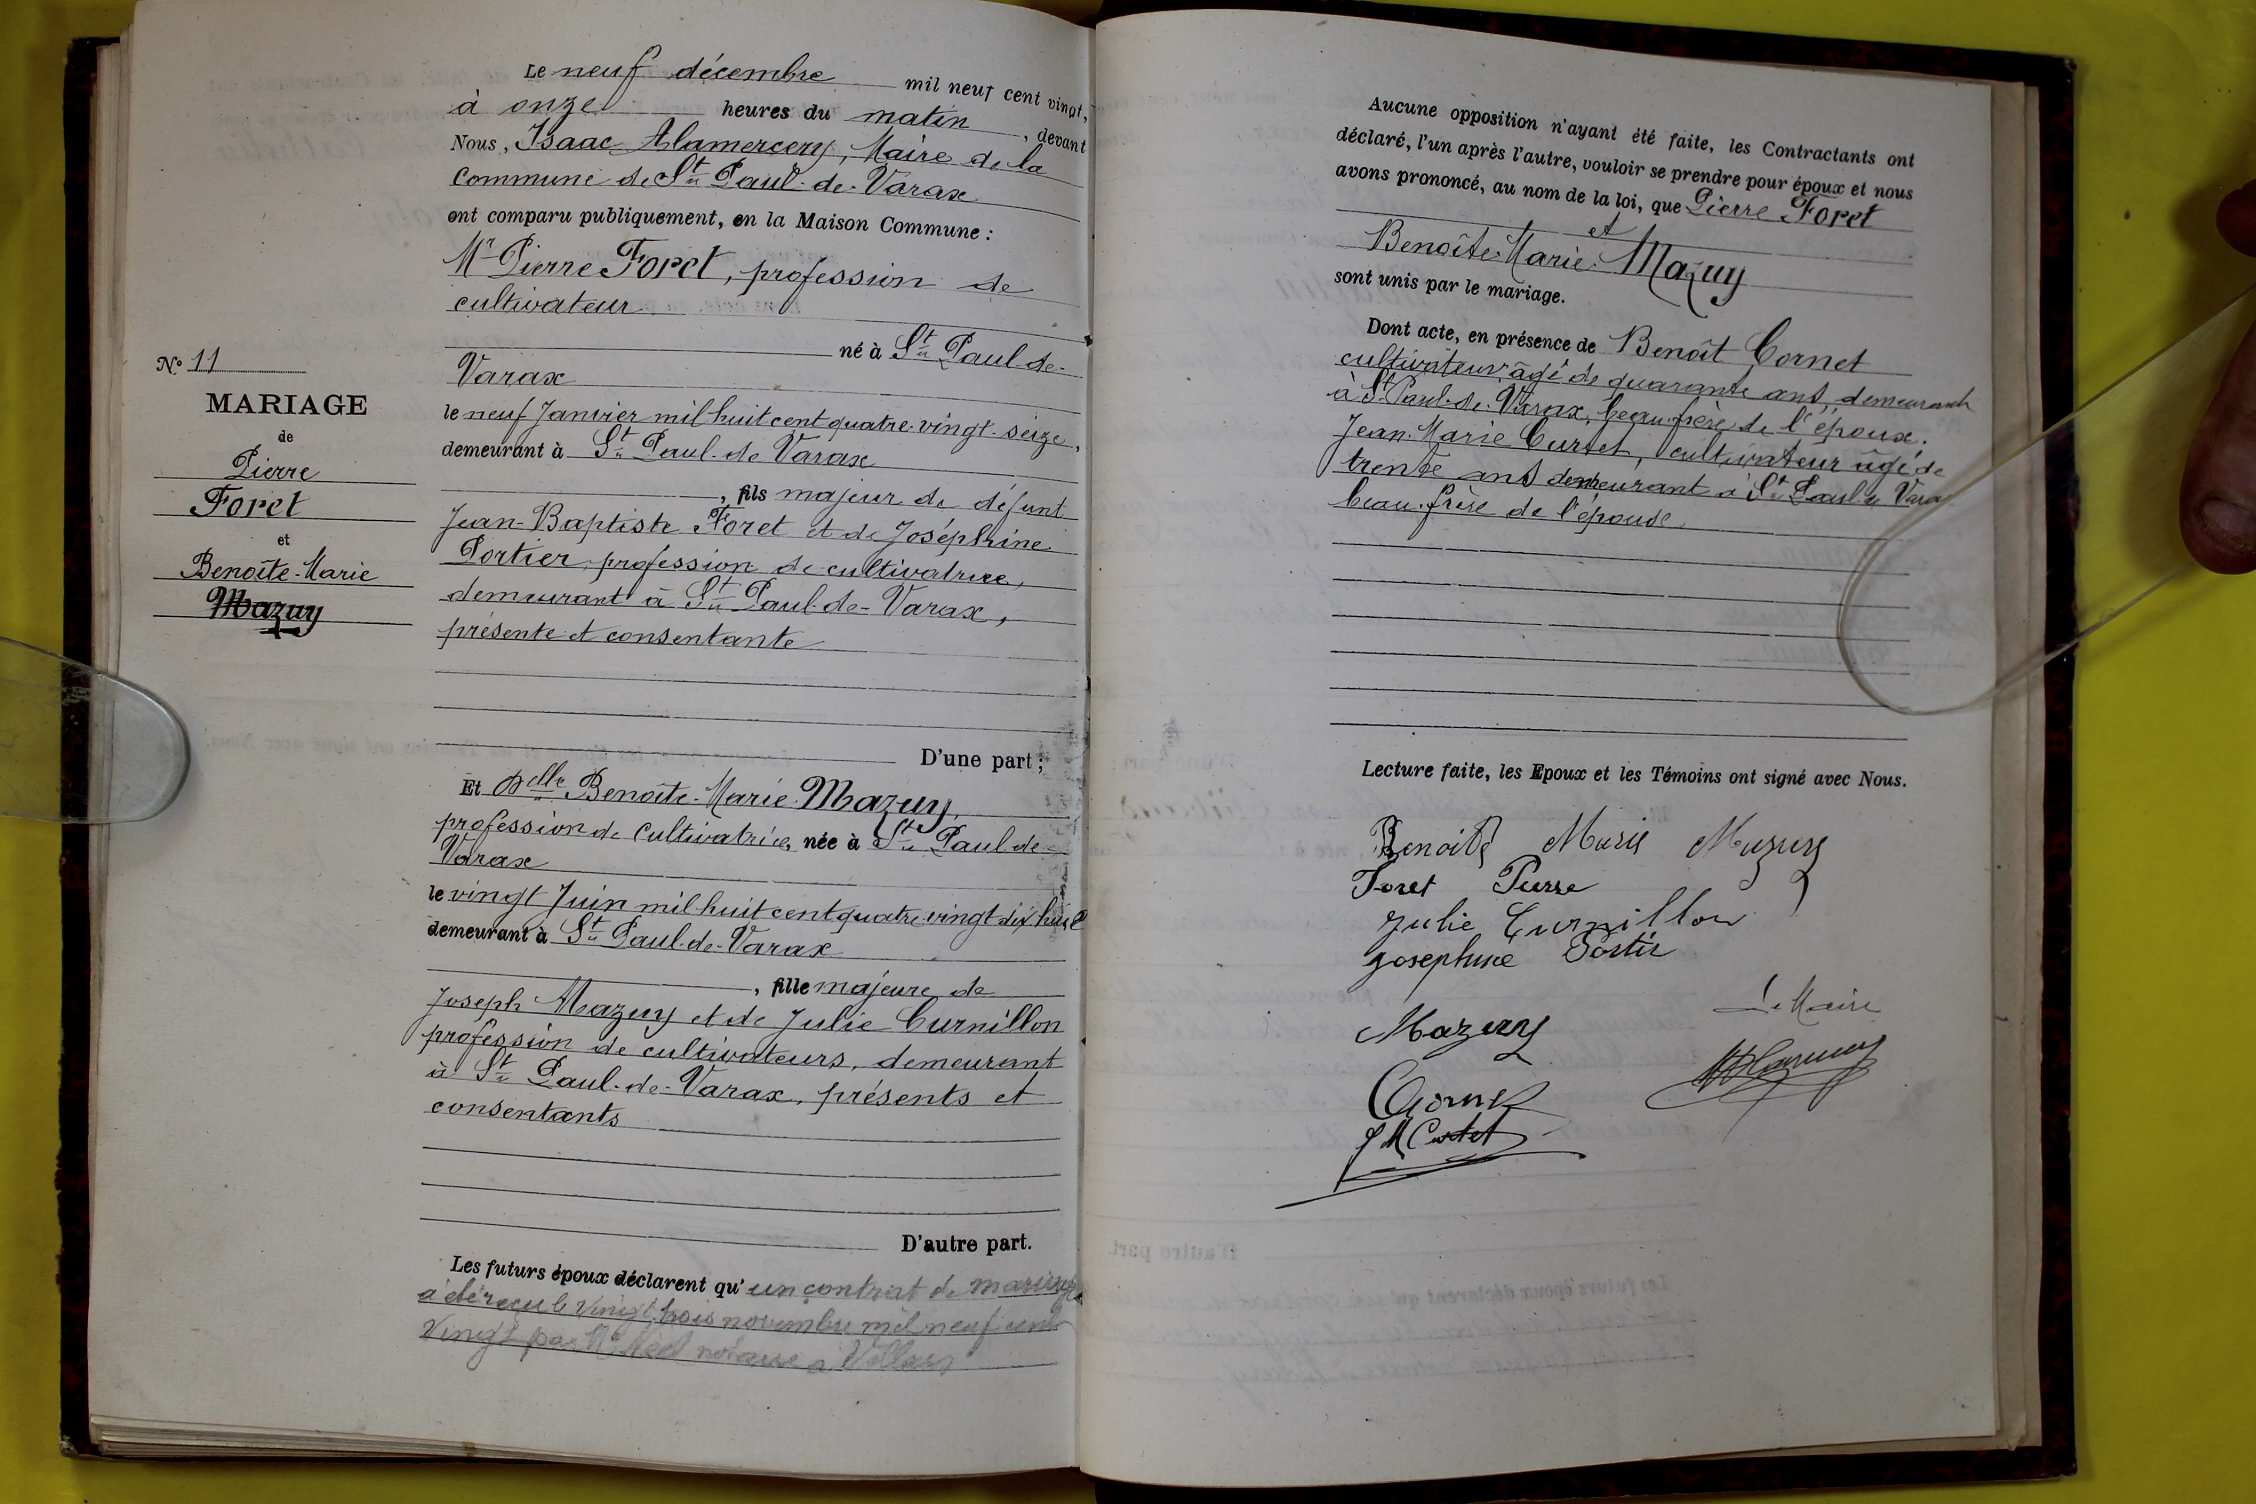 Le neuf décembre mil neuf cent vingt,
à onze heures du matin, devant
Nous, Isaac Alamercery, Maire de la
commune de St Paul-de-Varax
ont comparu publiquement, en la Maison Commune :
Mr Pierre Foret, profession de
cultivateur
né à St Paul-de-
Varax
le neuf Janvier mil huit cent quatre-vingt-seize,
demeurant à St Paul-de Varax
, fils majeur de défunt
Jean-Baptiste Foret et de Joséphine
Portier, profession de cultivatrice,
demeurant à St Paul-de-Varax,
présente et consentante
D'une part ;
Et Delle Benoîte-Marie Mazuy,
profession de cultivatrice, née à St Paul-de-
Varax
le vingt Juin mil huit cent quatre-vingt dix huit
demeurant à St Paul-de-Varax
, fille majeure de
Joseph Mazuy et de Julie Curnillon
profession de cultivateurs, demeurant
à St Paul-de-Varax, présents et
consentants
D'autre part.
Les futurs époux déclarent qu'un contrat de mariage
a été reçu le vingt trois novembre mil neuf cent
vingt par Me notaire à Villars
No 11
MARIAGE
de
Pierre
Foret
et
Benoîte-Marie
Mazuy
Aucune opposition n'ayant été faite, les Contractants ont
déclaré, l'un après l'autre, vouloir se prendre pour époux et nous
avons prononcé, au nom de la loi, que Pierre Foret
et
Benoîte-Marie Mazuy
sont unis par le mariage.
Dont acte, en présence de Benoît Cornet
cultivateur âgé de quarante ans, demeurant
à St Paul-de-Varax, beau-frère de l'époux.
Jean-Marie Curtet, cultivateur âgé de
trente ans demeurant à St Paul de Varax
beau-frère de l'épouse
Lecture faite, les Epoux et les Témoins ont signé avec Nous.
Benoite Marie Mazuy
Foret Pierre
Julie Curnillon
Josephine Portier
Le Maire
Mazuy
Alamercery
Cornet
J M Curtet